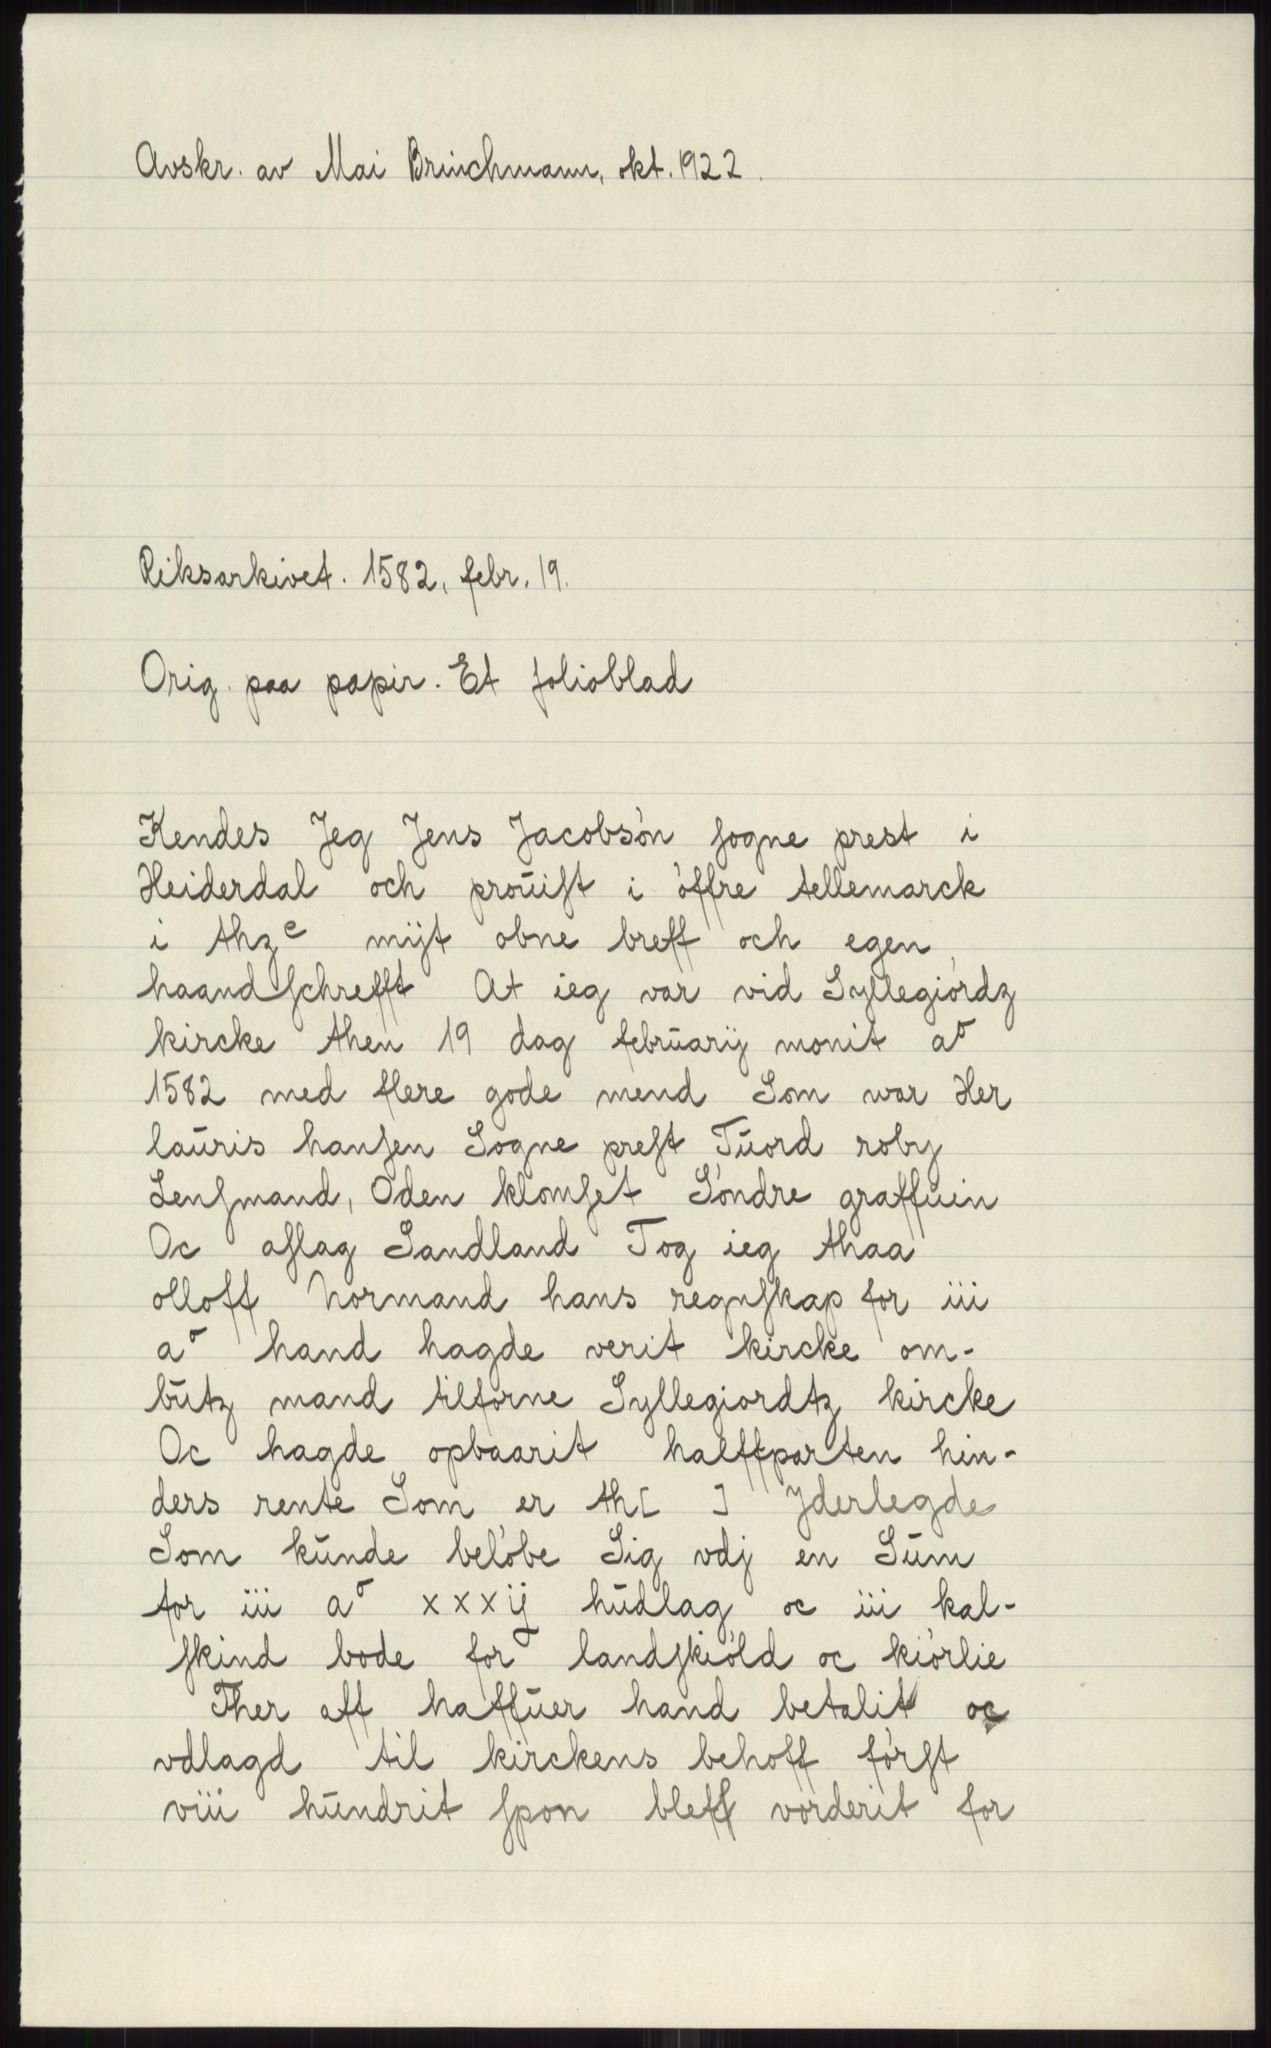 Avskr. av Mai Brinchmann, okt. 1922.
Riksarkivet. 1582, febr. 19.
Orig. paa papir. Et folioblad
Kendes Jeg Jens Jacobsón ſogne prest i
Heiderdal och proŭiſt i óffre tellemarck
i thzᵉ mijt obne breff och egen
haandſchrefft At ieg var vid Syllegiórdz
kircke then 19 dag febrŭarij monit aᵒ
1582 med flere gode mend Som war Her
laŭris hanſen Sogne preſt Tŭord roby
Lenſmand, Oden klomſet Sóndre graffŭin
Oc aſlag Sandland Tog ieg thaa
olloff Normand hans regnſkap for iii
aᵒ hand hagde verit kircke om-
bŭtz mand tilforne Syllegiordtz kircke
Oc hagde opbaarit halffparten hin-
ders rente Som er th[ ] Yderlegde
Som kŭnde belóbe Sig vdj en Sŭm
for iii aᵒ xxxij hŭdlag oc iii kal-
ſkind bode for landſkióld oc kiórlie
Ther aff haffŭer hand betalit oc
vdlagd til kirckens behoff fórſt
viii hŭndrit ſpon bleff vorderit for